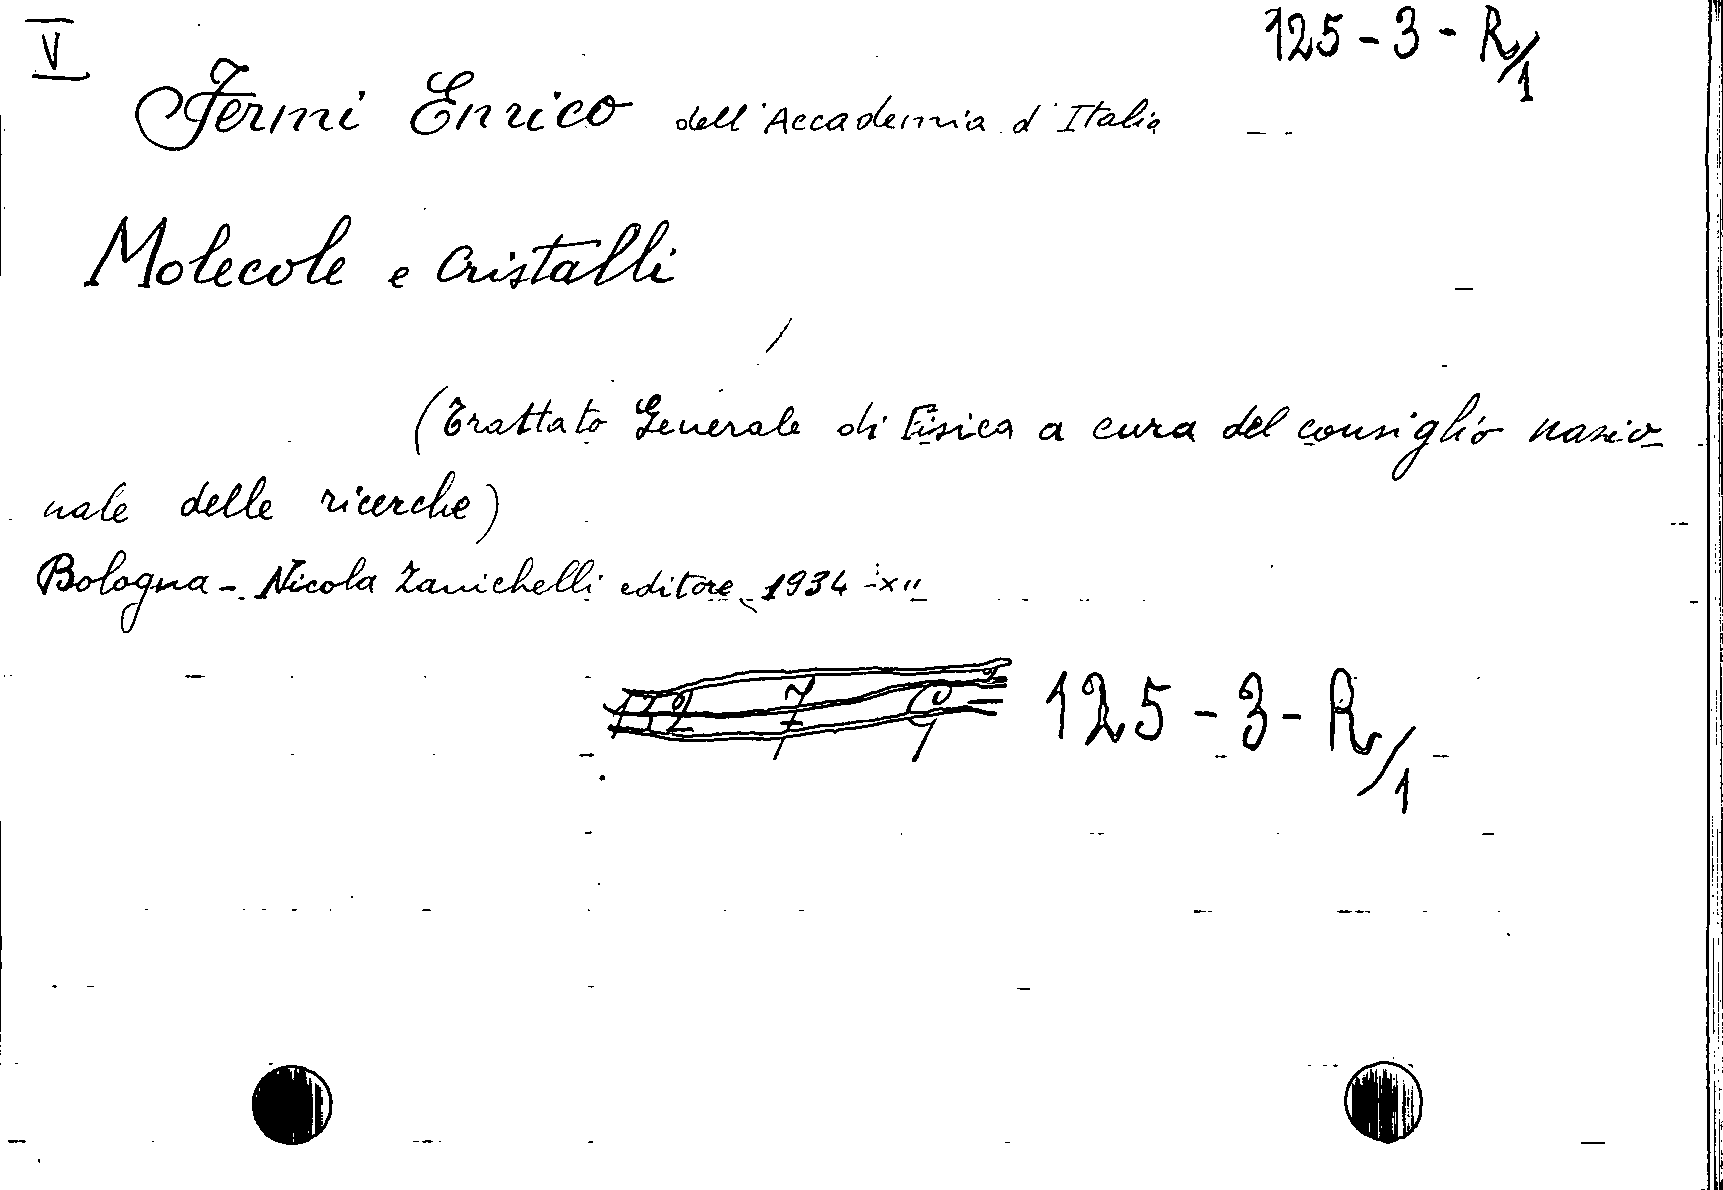 V
125-3-R/1
Fermi Enrico dell'Accademia d'Italia
Molecole e Cristalli
(Trattato Generale di Fisica a cura del consiglio nazio
nale delle ricerche)
Bologna - Nicola Zanichelli editore, 1934 - XII
125-3-R/1